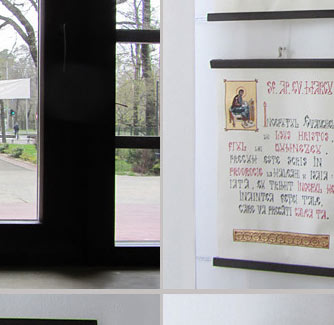 SF. AP. EV. MARCU
ÎNCEPUTUL EVANGHE
LUI IISUS HRISTOS,
FIUL LUI DUMNEZEU.
PRECUM ESTE SCRIS ÎN
PROOROCIE LA MALEAHI ȘI ISAIA:
IATĂ, EU TRIMIT ÎNGERUL ME
ÎNAINTEA FEȚEI TALE,
CARE VA PREGĂTI CALEA TA.